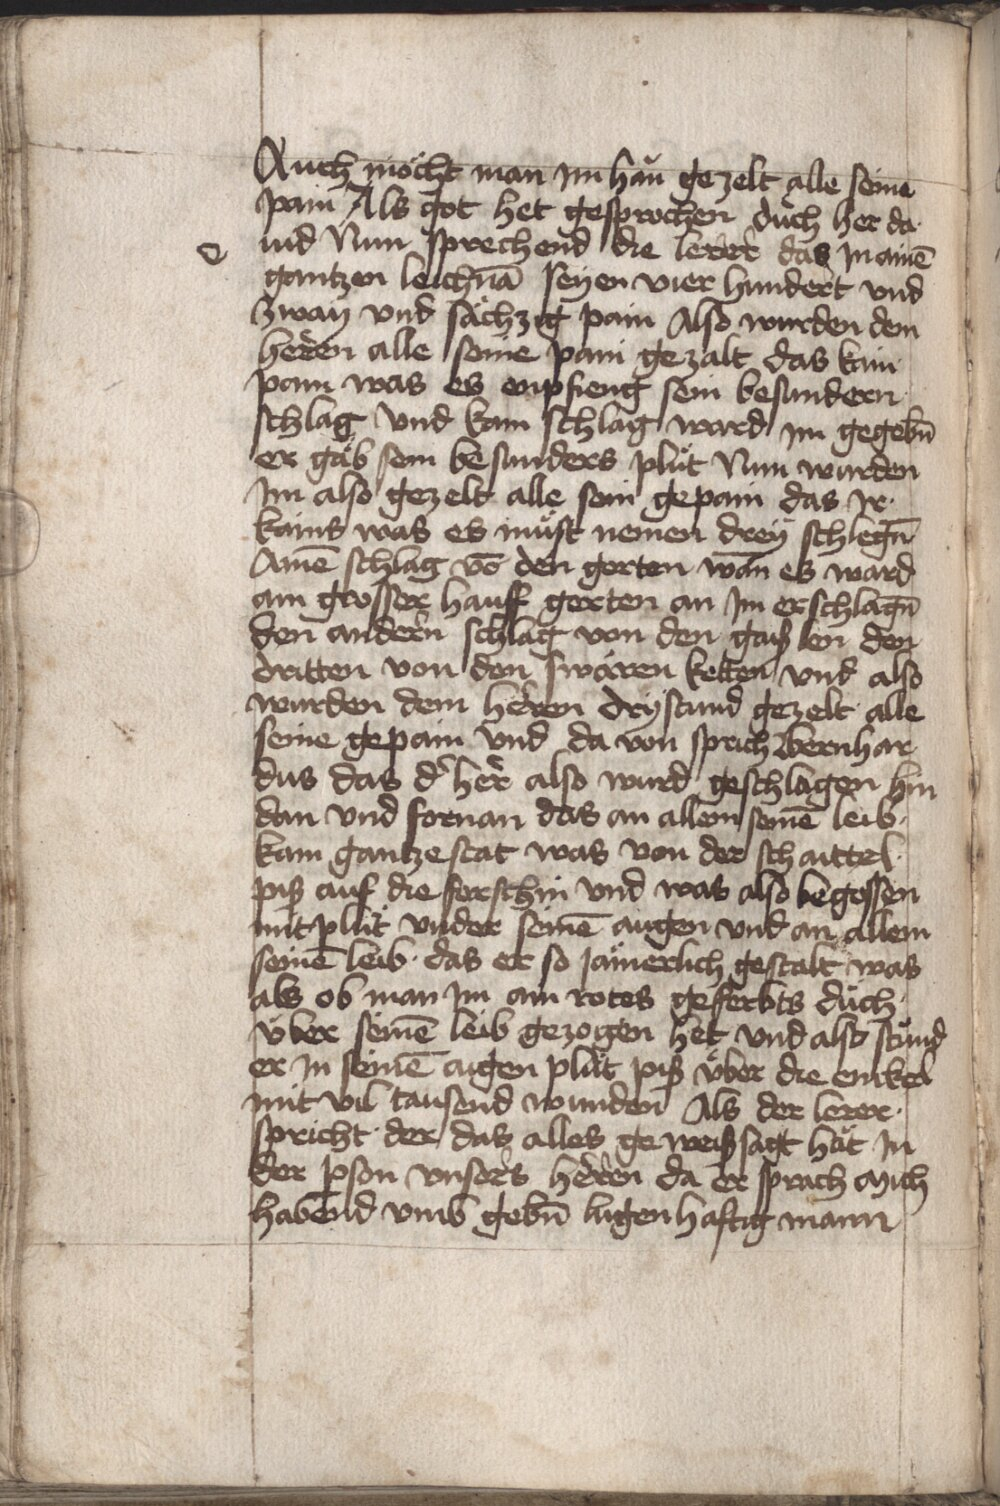 Auch möcht man im hañ gezelt alle seine
pain Als got het gesprochen duͤch her da
uid Nun sprechend die lerer das in ainē
gantzen leichnā seyen vier hundert vnd
zway vnd sächzig pain Also wurden dem
herren alle seine pain gezalt das kain
pain was es enpfieng sein besundern
schlag vnd kain schlag ward im gegebn̄
er gäb sein besunders plüt Nun wurden
im also gezelt alle sein gepain das ir
kains was es müst nemen drey schlegn̄
Ainē schlag vō den gerten wān es ward
ain grosser hauff gerten an im erschlagn̄
den andern schlag von den gaißlen den
dritten von den swären ketten vnd also
wurden dem herren drystund gezelt alle
seine gepain vnd da von sprich Bernhar
dus das d' her also ward geschlagen hin
dan vnd fornan das an allem seinē leib
kain gantze stat was von der schaittel
piß auf die ferschin vnd was also begossen
mit plüt vnder seinē augen vnd an allem
seinē leib das er so jämerlich gestalt was
als ob man im ain rotes geferbts düch
über seinē leib gezogen het vnd also stünd
er in seinē aigen plüt piß über die enckel
mit vil tausend wunden Als der lerer
spricht der das alles geweißsagt hät in
der pson vnsers herren da er sprach mich
habend vmb gebn̄ lugenhaftig mann